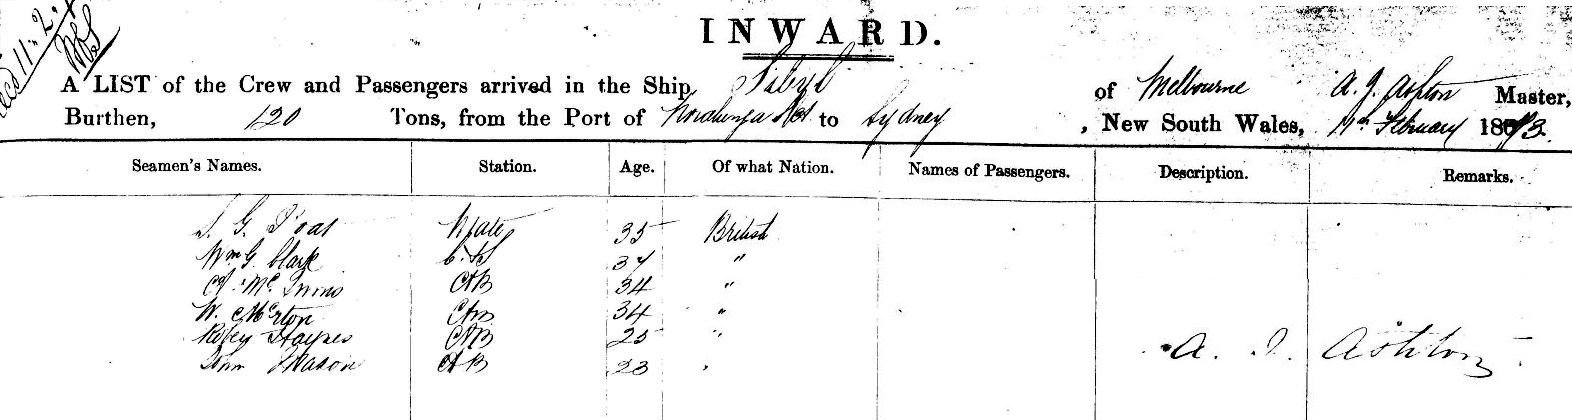 INWARD.
A LIST of the Crew and Passengers arrived in the Ship Sibyl of Melbourne A. J. Ashton Master,
Burthen, 120 Tons, from the Port of to Sydney, New South Wales, 11th February 1873.
Seamen's Names. Station. Age. Of what Nation. Names of Passengers. Description. Remarks.
G. Mate 35 British
Wm G. Clark 37 "
Mc. AB 34 "
W. AB 34 "
Haynes AB 25 "
John Mason AB 23
A. J. Ashton